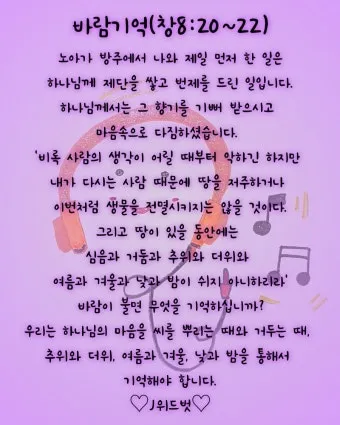 바람기억(창8:20~22)
노아가 방주에서 나와 제일 먼저 한 일은
하나님께 제단을 쌓고 번제를 드린 일입니다.
하나님께서는 그 향기를 기뻐 받으시고
마음속으로 다짐하셨습니다.
'비록 사람의 생각이 어릴 때부터 악하긴 하지만
내가 다시는 사람 때문에 땅을 저주하거나
이번처럼 생물을 전멸시키지는 않을 것이다.
그리고 땅이 있을 동안에는
심음과 거둠과 추위와 더위와
여름과 겨울과 낮과 밤이 쉬지 아니하리라'
바람이 불면 무엇을 기억하십니까?
우리는 하나님의 마음을 씨를 뿌리는 때와 거두는 때,
추위와 더위, 여름과 겨울, 낮과 밤을 통해서
기억해야 합니다.
♡J위드벗♡